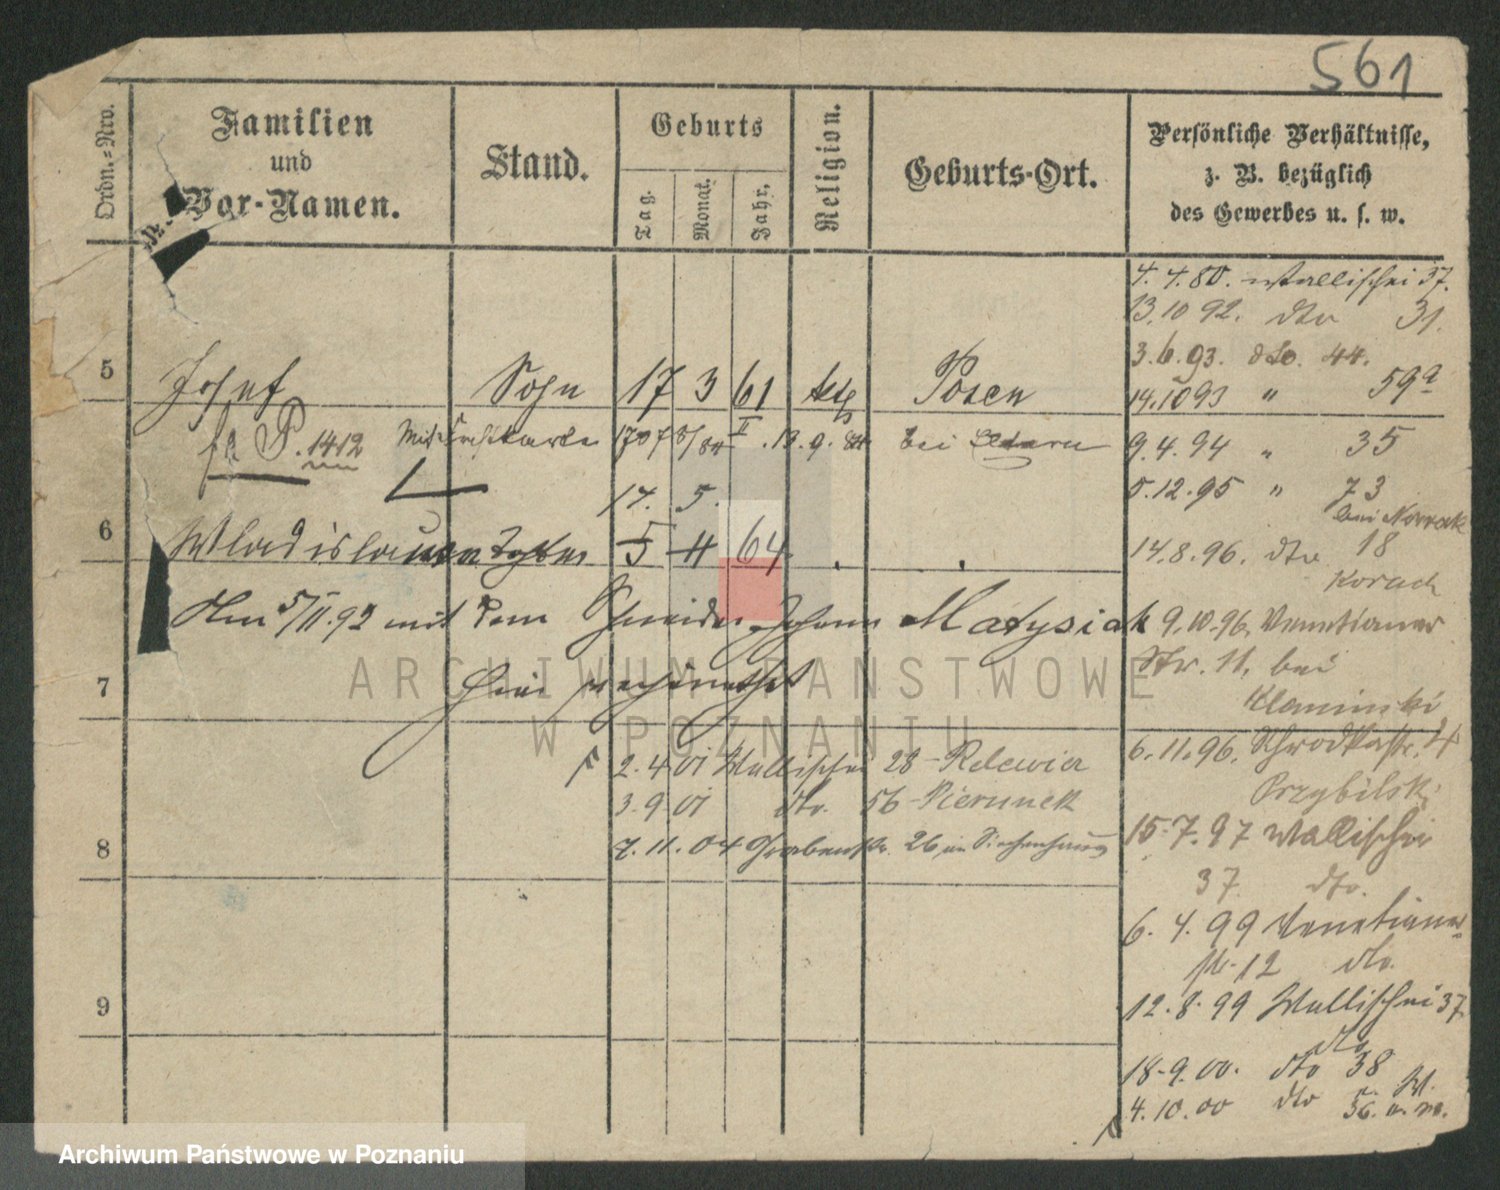 561
Ordn.=Nro.
Familien
und
Vor-Namen.
Stand.
Geburts
Tag.
Monat.
Jahr.
Religion.
Geburts-Ort.
Persönliche Verhältnisse,
z. B. bezüglich
des Gewerbes u. s. w.
4. 4. 80. Wallischei 37.
13. 10 92. dto 31.
3. 6. 93. dto. 44.
14. 10 93 " 59a
5 Josef Sohn 17 3 61 kth Posen
P. 1412 bei Eltern
9. 4. 94 " 35
5. 12. 95 " 73
bei Nowak
17. 5.
6 Wladislawa Tochter 5 11 64
14. 8. 96. dto 18
Korach
Am 5/II. 92 mit dem Schneider Johann Matysiak
9. 10. 96. Venetianer
Str. 11, bei
7 hier
Klaminski
6. 11. 96. Schrodkastr. 14
Przybilski
2. 4 01 Wallischei 28 - Relewicz
3. 9 01 dto. 56 - Pierunek
15. 7. 97 Wallischei
37 dto.
8 7. 11. 04 Grabenstr. 26 im Siechenhaus
6. 4. 99 Venetianer=
str. 12 dto.
9
12. 8. 99 Wallischei 37
dto
18. 9. 00. dto 38
4. 10. 00 dto 56.
ARCHIWUM PAŃSTWOWE
W POZNANIU
Archiwum Państwowe w Poznaniu